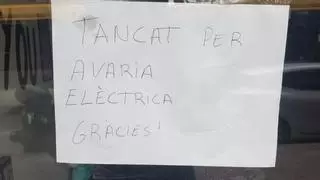 TANCAT PER
AVARIA
ELÈCTRICA
GRÀCIES!
YOU